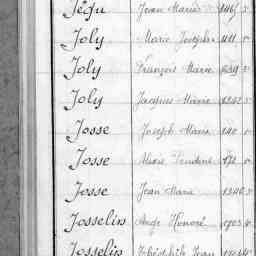 Jégu Jean Marie
Joly Marie Joseph 1111
Joly François Marie
Joly Jacques Marie 1242
Josse Joseph Marie 140
Josse Marie
Josse Jean Marie 1346
Josselin Ange Honoré 1903
Josselin Théophile Jean